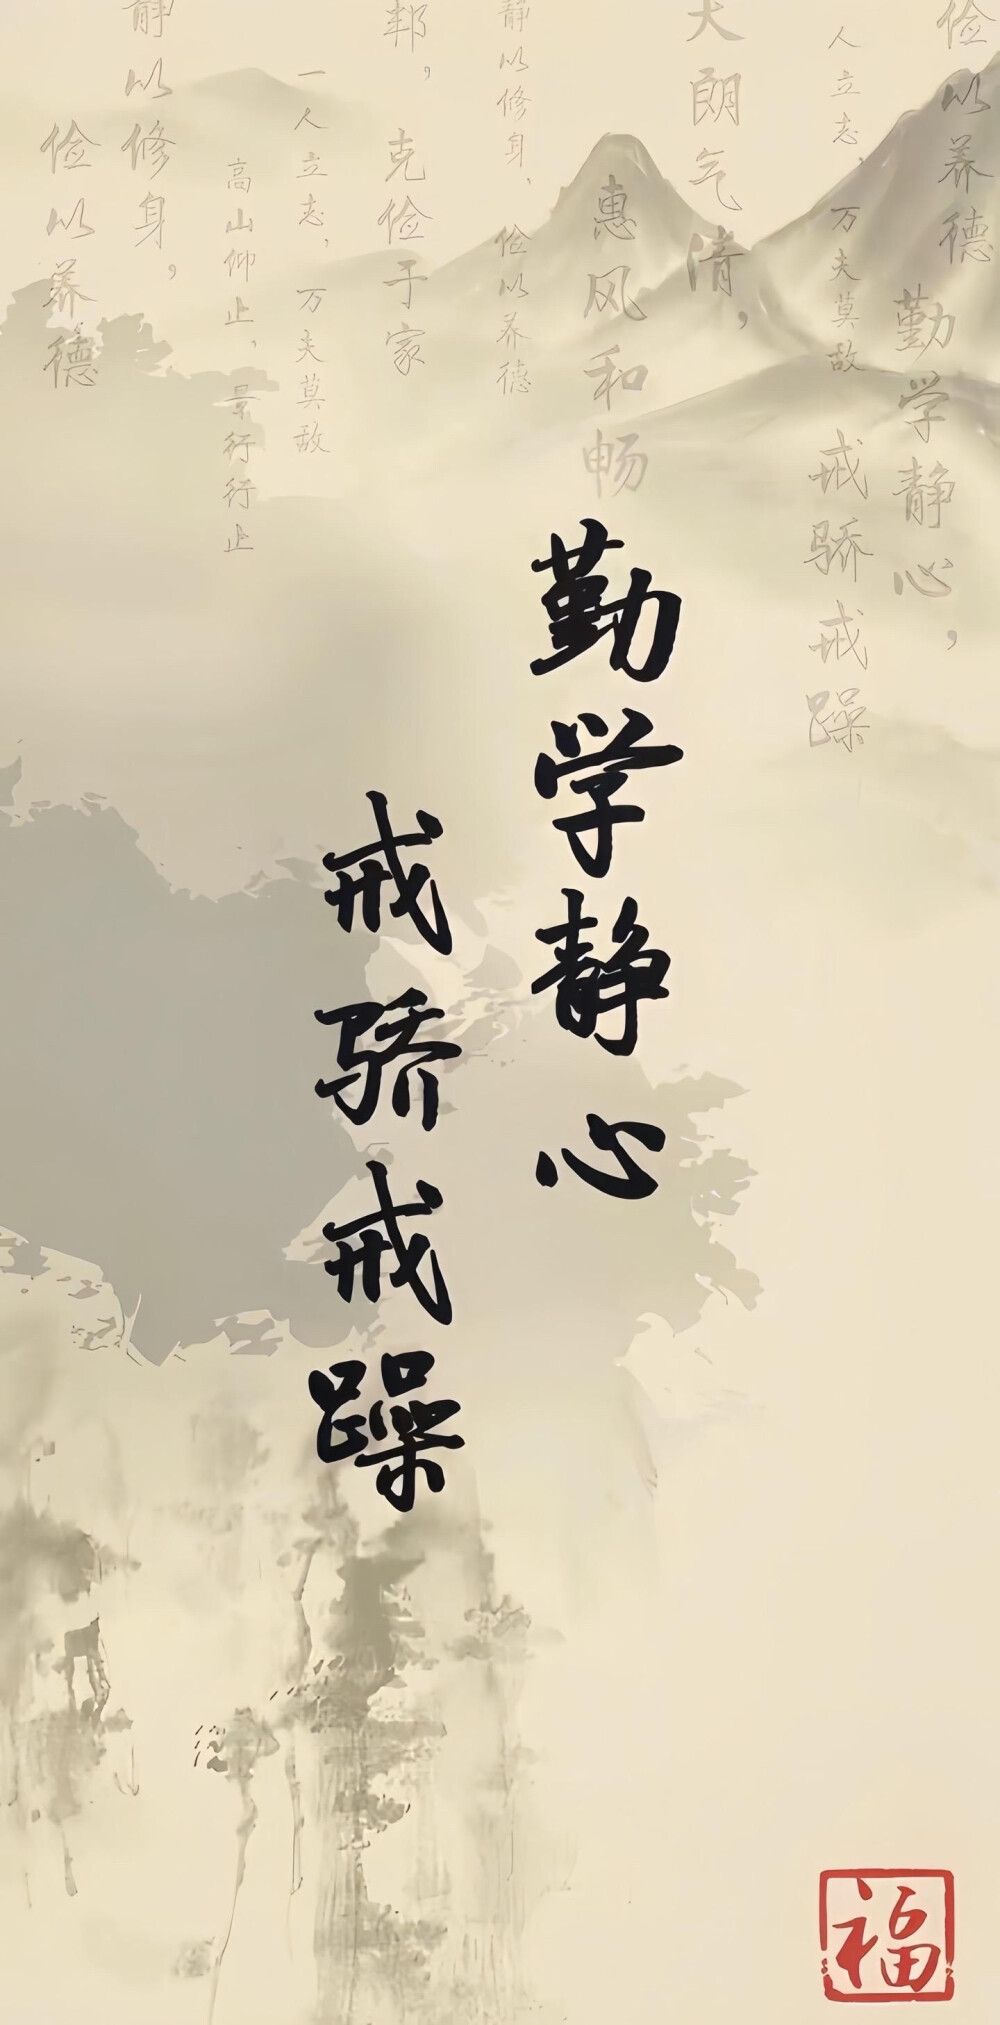 俭以养德
勤学静心，
戒骄戒躁
人立志，万夫莫敌
朗气清，
惠风和畅
静以修身，俭以养德
邦，克俭于家
一人立志，万夫莫敌
高山仰止，景行行止
静以修身，
俭以养德
勤学静心
戒骄戒躁
福